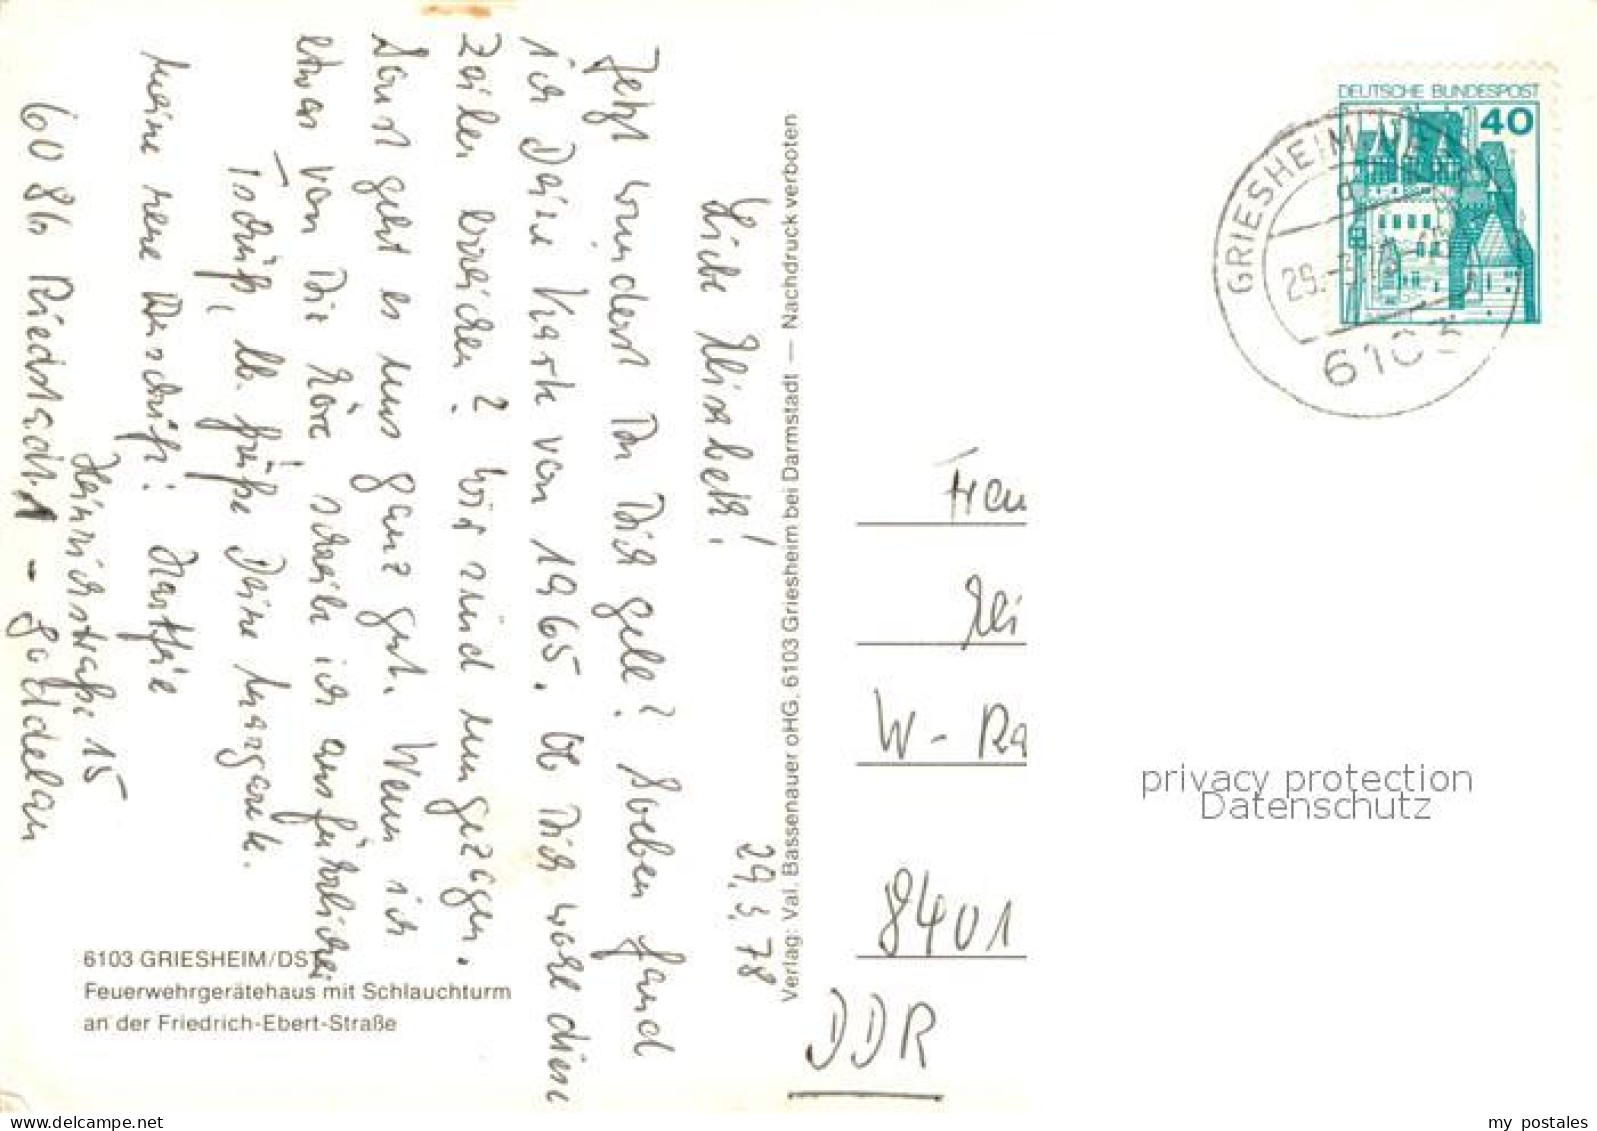 29.3.78
Liebe Elisabeth!
Jetzt wunderst Du Dich gell? Soeben fand
ich Deine Karte von 1965. Ob Dich wohl diese
Zeilen erreichen? Wir sind umgezogen.
Sonst geht es uns ganz gut. Wenn ich
etwas von Dir höre schreibe ich ausführlicher
Tschüß, lb. Grüße Deine Margarete.
meine neue Anschrift:
Heinrichstraße 15
6086 Riedstadt 1 - Goddelau
6103 GRIESHEIM/DST
Feuerwehrgerätehaus mit Schlauchturm
an der Friedrich-Ebert-Straße
Verlag: Val. Bassenauer oHG, 6103 Griesheim bei Darmstadt — Nachdruck verboten
DEUTSCHE BUNDESPOST
40
GRIESHEIM
29.-3.
6103
Frau
Eli
W - Ra
8401
DDR
privacy protection
Datenschutz
www.delcampe.net
my_postales